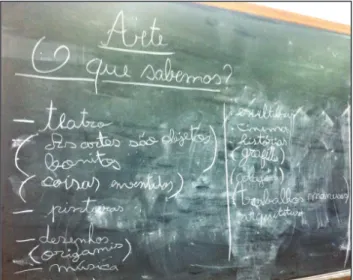 Arte
O que sabemos?
– teatro
(As artes são objetos
bonitos)
(coisas inventadas)
– pinturas
– desenhos
(origamis)
– música
cinema
histórias
(grafite)
(trabalhos manuais)
arquitetura